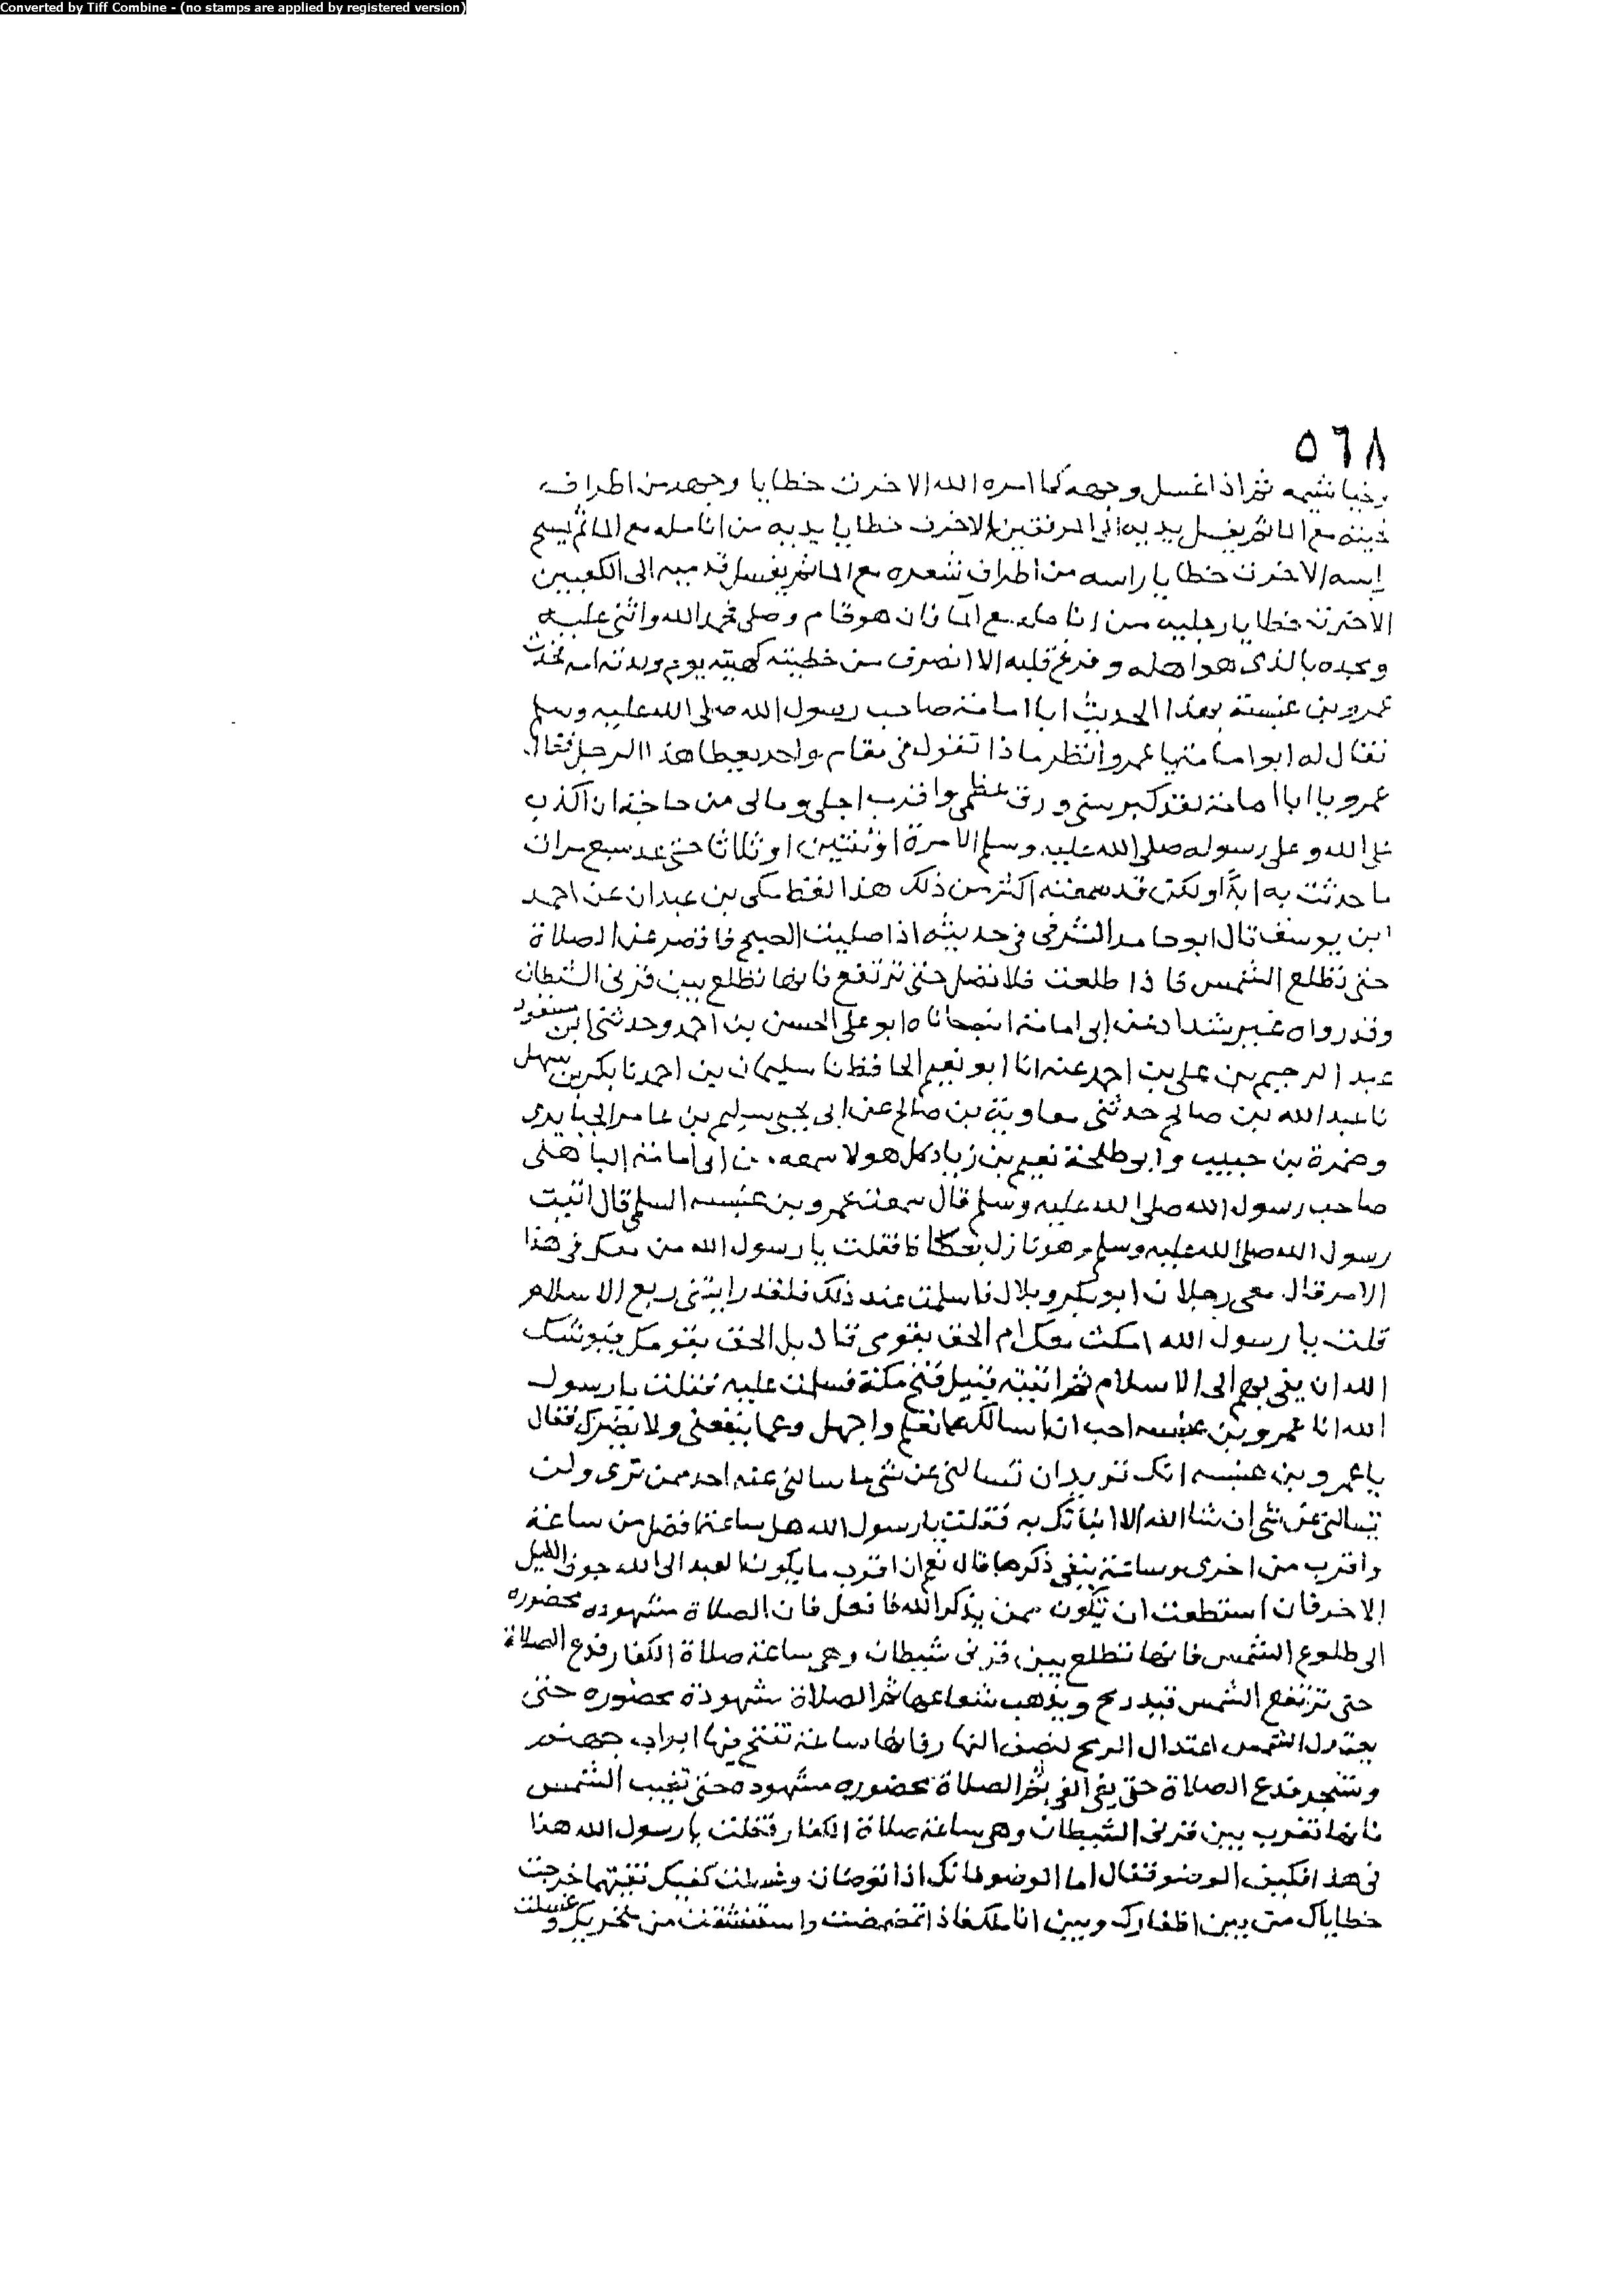 Converted by Tiff Combine - (no stamps are applied by registered version)
٥٦٨
وخياشيمه ثم اذا غسل وجهه كما امره الله الا خرت خطايا وجهه من اطراف
لحيته مع الما ثم يغسل يديه الى المرفقين الا خرت خطايا يديه من انامله مع الما ثم يمسح
راسه الا خرت خطايا راسه من اطراف شعره مع الما ثم يغسل قدميه الى الكعبين
الا خرت خطايا رجليه من انامله مع الما فان هو قام وصلى فحمد الله واثنى عليه
ومجده بالذى هو اهله وفرغ قلبه الا انصرف من خطيته كهيته يوم ولدته امه فحدث
عمرو بن عنبسة بهذا الحديث ابا امامة صاحب رسول الله صلى الله عليه وسلم
فقال له ابو امامة يا عمرو انظر ماذا تقول فى مقام واحد يعطا هذا الرجل فقال
عمرو يا ابا امامة لقد كبر سنى ورق عظمى واقترب اجلى وما لى من حاجة ان اكذب
على الله وعلى رسوله صلى الله عليه وسلم الا مرة او ثنتين او ثلاثا حتى عد سبع مرات
ما حدثت به ابدا ولكن قد سمعته اكثر من ذلك هذا لفظ مكى بن عبدان عن احمد
ابن يوسف قال ابو حامد الشرقى فى حديثه اذا صليت الصبح فاقصر عن الصلاة
حتى تطلع الشمس فاذا طلعت فلا تصل حتى ترتفع فانها تطلع بين قرنى الشيطان
وقد رواه غير شداد عن ابى امامة انبجاناه ابو على الحسن بن احمد وحدثنى ابن مسعود
عبد الرحيم بن على بن احمد عنه انا ابو نعيم الحافظ نا سليمان بن احمد نا بكر بن سهل
نا عبد الله بن صالح حدثنى معاوية بن صالح عن ابى يحيى سليم بن عامر الخبايرى
وضمرة بن حبيب وابو طلحة نعيم بن زياد كل هولا سمعه من ابى امامة الباهلى
صاحب رسول الله صلى الله عليه وسلم قال سمعت عمرو بن عنبسه السلمى قال اتيت
رسول الله صلى الله عليه وسلم وهو نازل بعكاظ فقلت يا رسول الله من معك فى هذا
الامر قال معى رجلان ابو بكر وبلال فاسلمت عند ذلك فلقد رايتنى ربع الاسلام
قلت يا رسول الله امكث معك ام الحق بقومى قال بل الحق بقومك فيوشك
الله ان يفى بهم الى الاسلام ثم اتيته قبيل فتح مكة فسلمت عليه فقلت يا رسول
الله انا عمرو بن عنبسه احب ان اسالك عما تعلم واجهل وعما ينفعنى ولا يضرك فقال
يا عمرو بن عنبسه انك تريد ان تسالنى عن شى ما سالنى عنه احد ممن ترى ولن
تسالنى عن شى ان شا الله الا انباتك به فقلت يا رسول الله هل ساعة افضل من ساعة
واقرب من اخرى وساعة ينفى ذكرها قال نعم ان اقرب ما يكون العبد الى الله جوف الليل
الاخر فان استطعت ان تكون ممن يذكر الله فافعل فان الصلاة مشهوده محضوره
الى طلوع الشمس فانها تطلع بين قرنى شيطان وهى ساعة صلاة الكفار فدع الصلاة
حتى ترتفع الشمس قيد رمح ويذهب شعاعها ثم الصلاة مشهودة محضوره حتى
يعتدل الشمس اعتدال الرمح لنصف النهار فانها ساعة تفتح فيها ابواب جهنم
وتسجر فدع الصلاة حتى يفى الفى ثم الصلاة محضوره مشهوده حتى تغيب الشمس
فانها تغرب بين قرنى الشيطان وهى ساعة صلاة الكفار فقلت يا رسول الله هذا
فى هذا فكيف الوضو فقال اما الوضو فانك اذا توضات وغسلت كفيك نقيتهما خرجت
خطاياك من بين اظفارك وبين انا ملك فاذا تمضمضت واستنشقت من منخريك وغسلت